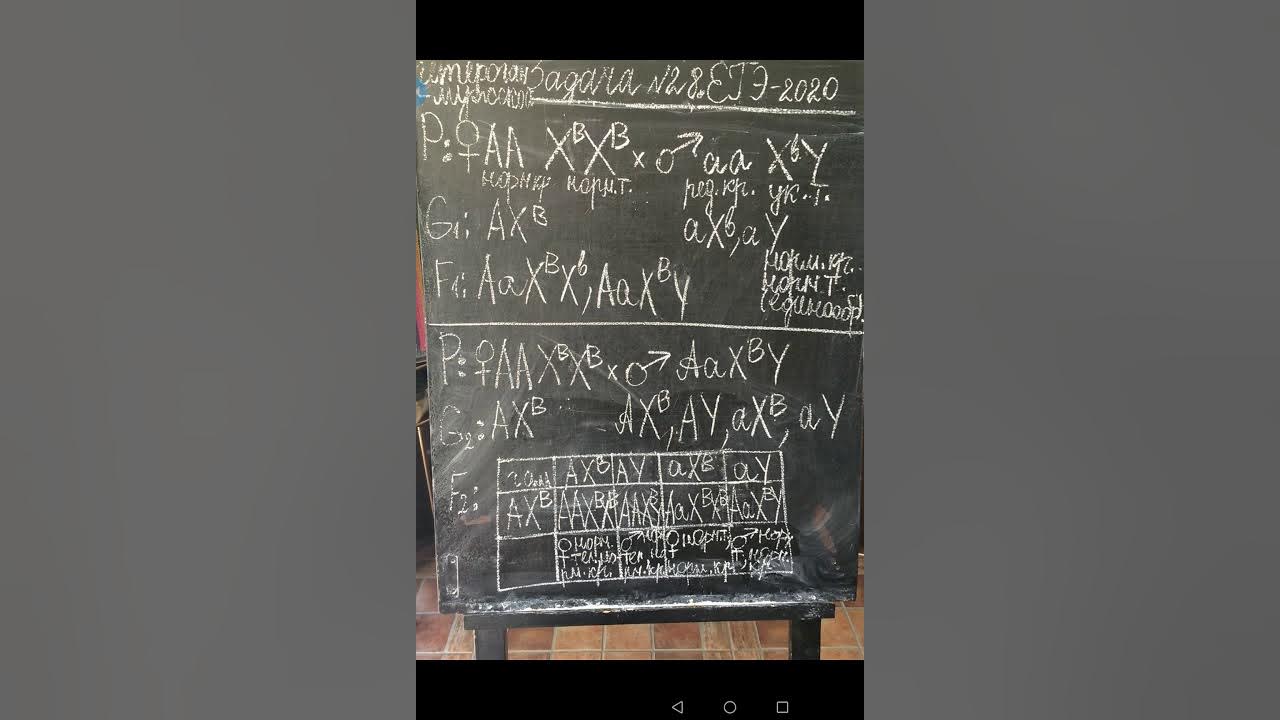 Задача №28. ЕГЭ-2020
P: ♀ AA XᴮXᴮ × ♂ aa XᵇY
норм.т. ред.кр. ук.т.
G₁: AXᴮ aXᵇ, aY
F₁: AaXᴮXᵇ, AaXᴮY
норм.кр.
норм.т.
(единообр.
P: ♀ AAXᴮXᴮ × ♂ AaXᴮY
G₂: AXᴮ AXᴮ, AY, aXᴮ, aY
F₂: AXᴮ AY aXᴮ aY
AXᴮ AAXᴮXᴮ AAXᴮY AaXᴮXᴮ AaXᴮY
♀ норм. ♂ ♀ норм.т. ♂ норм.